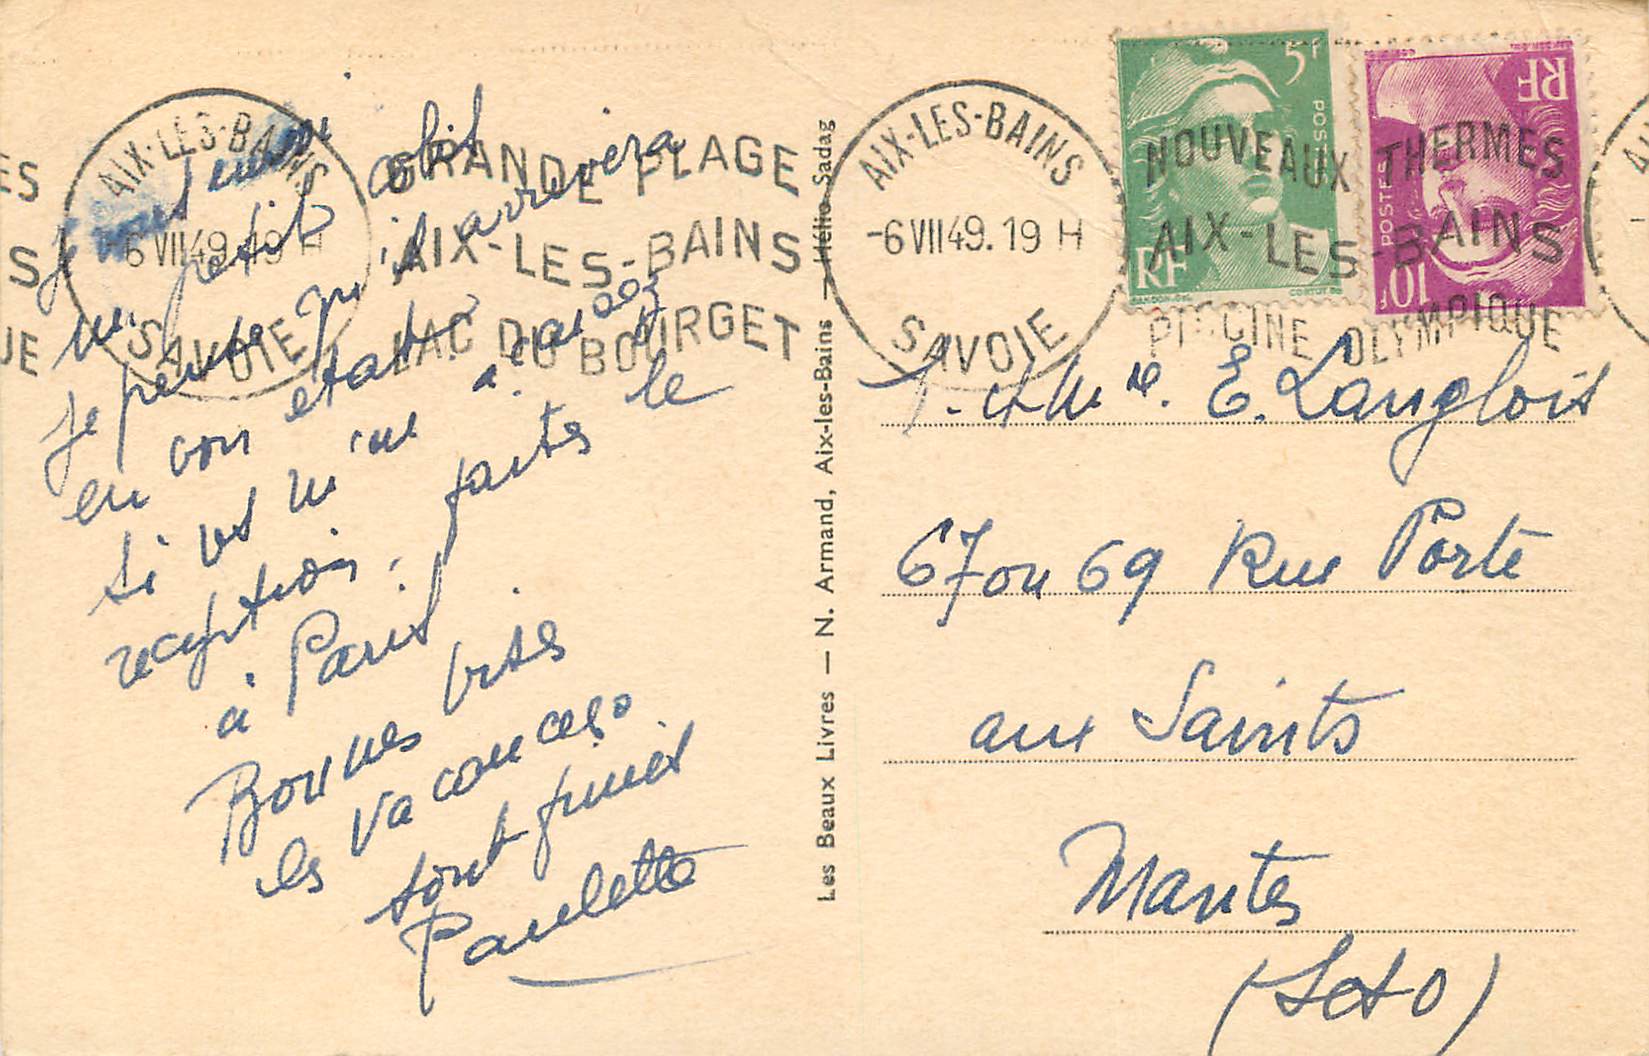 AIX-LES-BAINS
-6 VII 49. 19 H
SAVOIE
GRANDE PLAGE
AIX-LES-BAINS
LAC DU BOURGET
je vous envoie
un petit colis
je pense qu'il arrivera
en bon état.
si vs m'en accusez
réception, faites le
à Paris
Bonnes bises
les vacances
sont finies
Paulette
Les Beaux Livres — N. Armand, Aix-les-Bains — Hélio Sadag
AIX-LES-BAINS
-6 VII 49. 19 H
SAVOIE
NOUVEAUX THERMES
AIX-LES-BAINS
PISCINE OLYMPIQUE
5f
POSTES
RF
RF
POSTES
10f
E. Langlois
67 ou 69 Rue Porte
aux Saints
Mantes
(S et O)
ES
S
UE